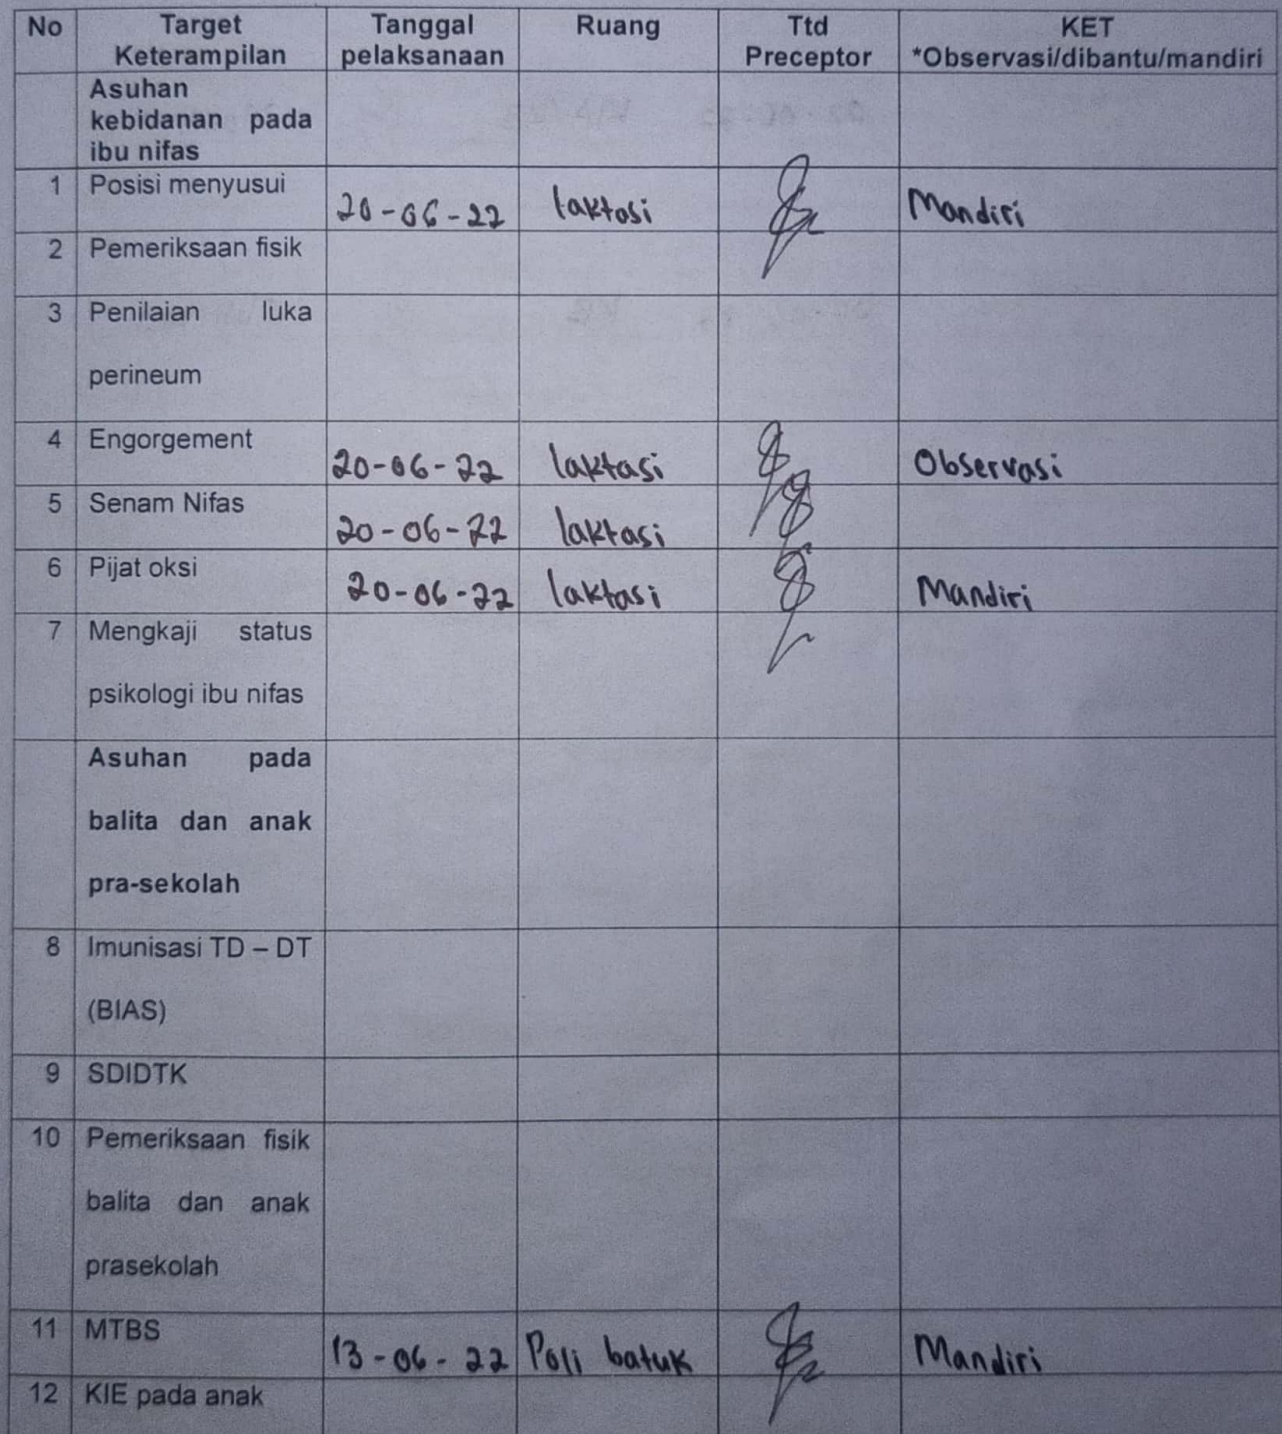 No Target Keterampilan Tanggal pelaksanaan Ruang Ttd Preceptor KET *Observasi/dibantu/mandiri
Asuhan
kebidanan pada
ibu nifas
1 Posisi menyusui
20-06-22 laktasi Mandiri
2 Pemeriksaan fisik
3 Penilaian luka
perineum
4 Engorgement
20-06-22 laktasi Observasi
5 Senam Nifas
20-06-22 laktasi
6 Pijat oksi
20-06-22 laktasi Mandiri
7 Mengkaji status
psikologi ibu nifas
Asuhan pada
balita dan anak
pra-sekolah
8 Imunisasi TD – DT
(BIAS)
9 SDIDTK
10 Pemeriksaan fisik
balita dan anak
prasekolah
11 MTBS
13-06-22 Poli batuk Mandiri
12 KIE pada anak